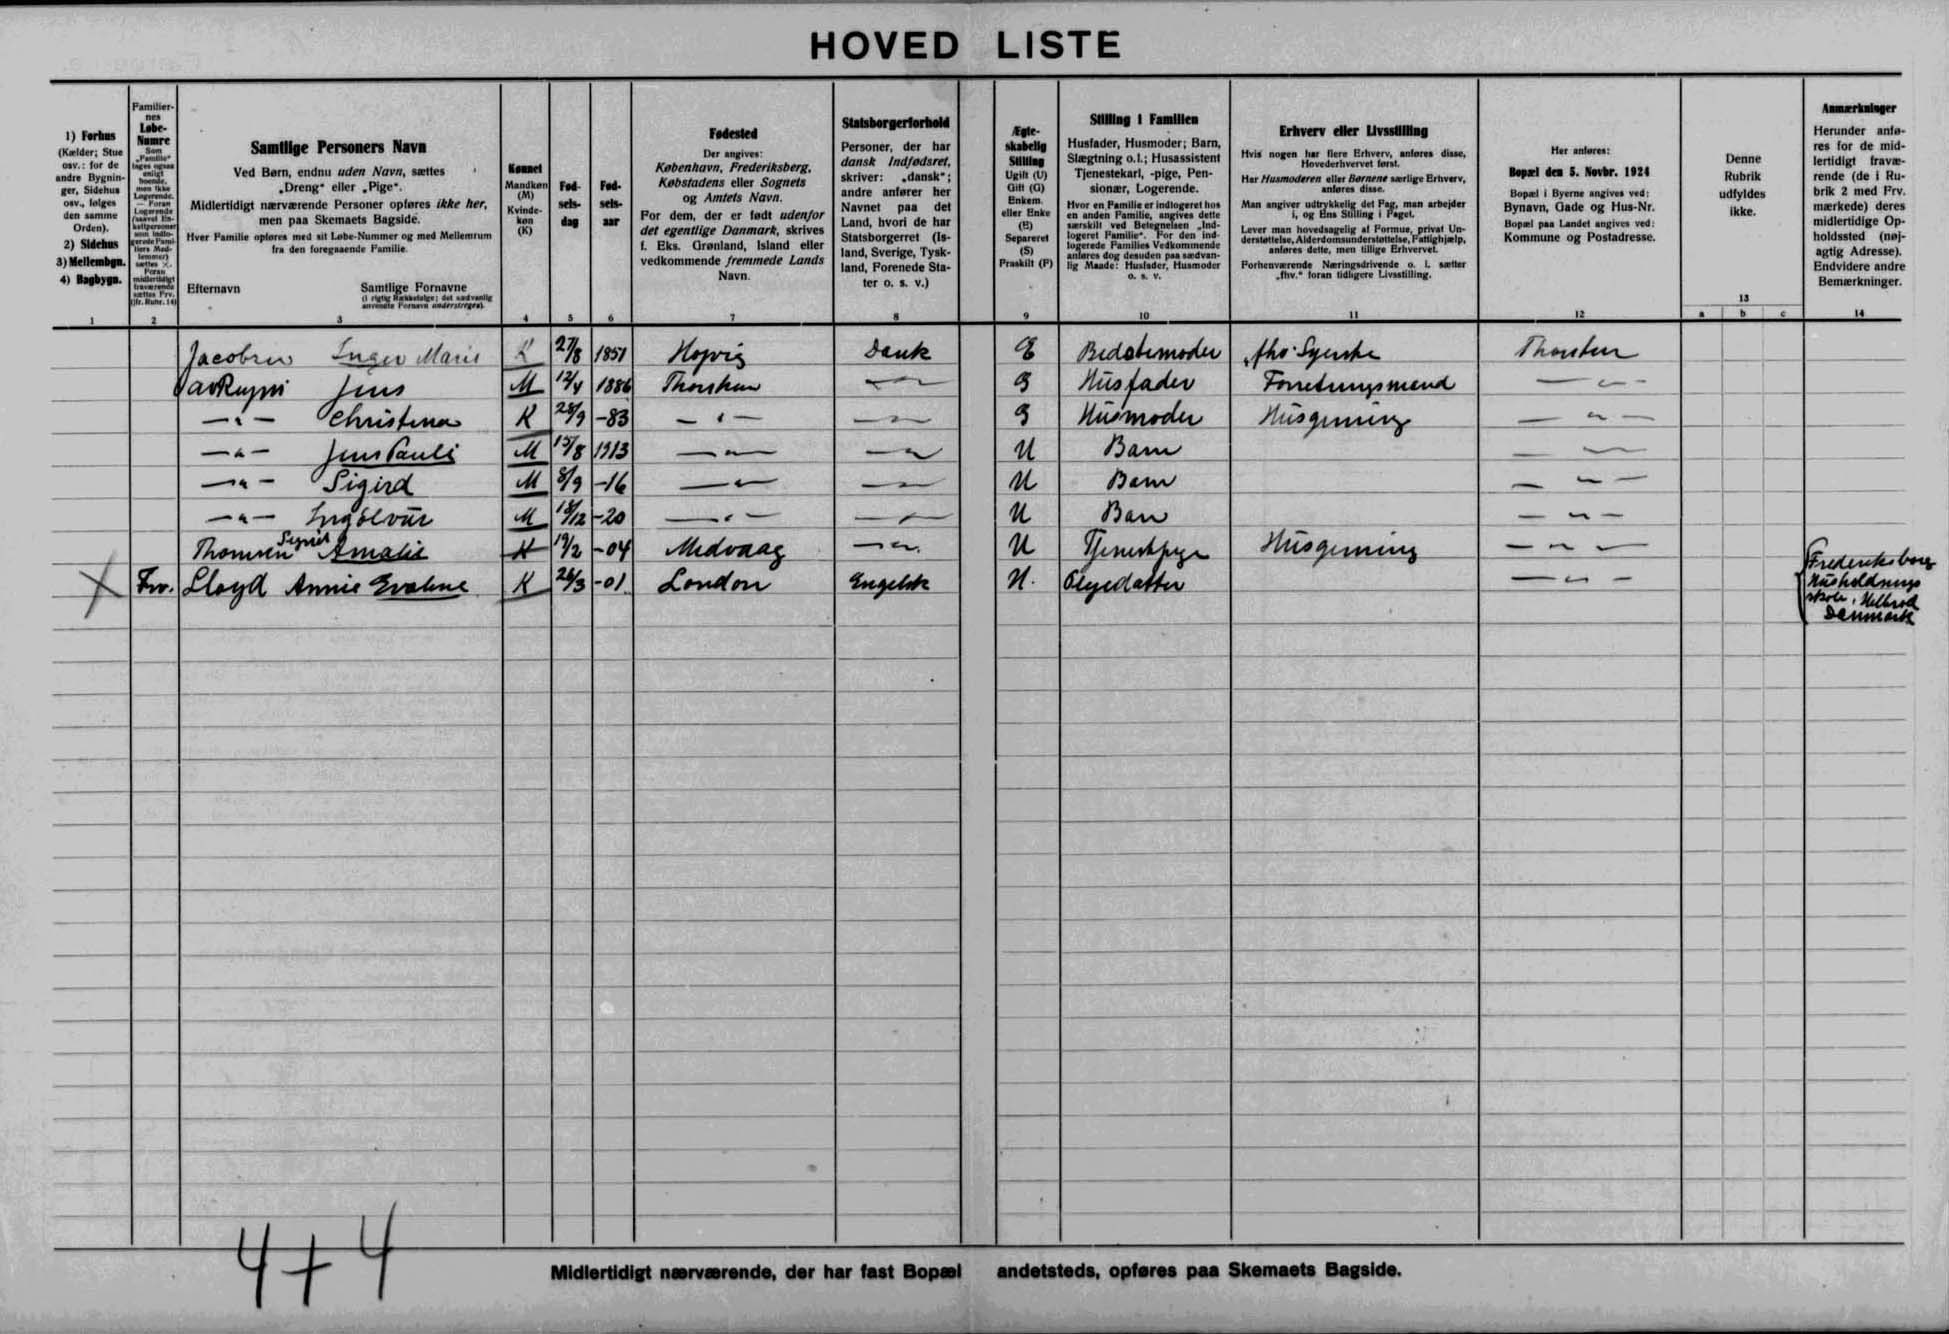 HOVED LISTE
1) Forhus
(Kælder; Stue
osv.: for de
andre Bygnin-
ger, Sidehus
osv., følges
den samme
Orden).
2) Sidehus
3) Mellembgn.
4) Bagbygn.
1
Familier-
nes
Løbe-
Numre
Som
„Familie"
tages ogsaa
enligt
boende,
men ikke
Logerende.
— Foran
Logerende
(saavel En-
keltpersoner
som indlo-
gerede Fami-
liers Med-
lemmer)
sættes ×.
Foran
midlertidigt
fraværende
sættes Frv.
(jfr. Rubr. 14)
2
Samtlige Personers Navn
Ved Børn, endnu uden Navn, sættes
„Dreng" eller „Pige".
Midlertidigt nærværende Personer opføres ikke her,
men paa Skemaets Bagside.
Hver Familie opføres med sit Løbe-Nummer og med Mellemrum
fra den foregaaende Familie.
Efternavn
Samtlige Fornavne
(i rigtig Rækkefølge; det sædvanlig
anvendte Fornavn understreges).
3
Kønnet
Mandkøn
(M)
Kvinde-
køn
(K)
4
Fød-
sels-
dag
5
Fød-
sels-
aar
6
Fødested
Der angives:
København, Frederiksberg,
Købstadens eller Sognets
og Amtets Navn.
For dem, der er født udenfor
det egentlige Danmark, skrives
f. Eks. Grønland, Island eller
vedkommende fremmede Lands
Navn.
7
Statsborgerforhold
Personer, der har
dansk Indfødsret,
skriver: „dansk";
andre anfører her
Navnet paa det
Land, hvori de har
Statsborgerret (Is-
land, Sverige, Tysk-
land, Forenede Sta-
ter o. s. v.)
8
Ægte-
skabelig
Stilling
Ugift (U)
Gift (G)
Enkem.
eller Enke
(E)
Separeret
(S)
Fraskilt (F)
9
Stilling i Familien
Husfader, Husmoder; Barn,
Slægtning o.l.; Husassistent
Tjenestekarl, -pige, Pen-
sionær, Logerende.
Hvor en Familie er indlogeret hos
en anden Familie, angives dette
særskilt ved Betegnelsen „Ind-
logeret Familie". For den ind-
logerede Families Vedkommende
anføres dog desuden paa sædvan-
lig Maade: Husfader, Husmoder
o. s. v.
10
Erhverv eller Livsstilling
Hvis nogen har flere Erhverv, anføres disse,
Hovederhvervet først.
Har Husmoderen eller Børnene særlige Erhverv,
anføres disse.
Man angiver udtrykkelig det Fag, man arbejder
i, og Ens Stilling i Faget.
Lever man hovedsagelig af Formue, privat Un-
derstøttelse, Alderdomsunderstøttelse, Fattighjælp,
anføres dette, men tillige Erhvervet.
Forhenværende Næringsdrivende o. l. sætter
„fhv." foran tidligere Livsstilling.
11
Her anføres:
Bopæl den 5. Novbr. 1924
Bopæl i Byerne angives ved:
Bynavn, Gade og Hus-Nr.
Bopæl paa Landet angives ved:
Kommune og Postadresse.
12
Denne
Rubrik
udfyldes
ikke.
13
a b c
Anmærkninger
Herunder anfø-
res for de mid-
lertidigt fravæ-
rende (de i Ru-
brik 2 med Frv.
mærkede) deres
midlertidige Op-
holdssted (nøj-
agtig Adresse).
Endvidere andre
Bemærkninger.
14
Jacobsen Inger Marie K 27/8 1851 Hojvig Dansk E Bedstemoder fhv. Syerske Thorshavn
av Rupni Jens M 12/4 1886 Thorshavn —„— G Husfader Forretningsmand —„—
—„— Christina K 28/9 -83 —„— —„— G Husmoder Husgerning —„—
—„— Jens Pauli M 15/8 1913 —„— —„— U Barn —„—
—„— Sigurd M 8/9 -16 —„— —„— U Barn —„—
—„— Ingolvur M 18/12 -20 —„— —„— U Barn —„—
Thomsen Signet Amalie K 19/2 -04 Midvaag —„— U Tjenestpige Husgerning —„—
Frv. Lloyd Annie Eveline K 26/3 -01 London Engelsk U. Plejedatter —„— Frederiksborg
Husholdnings
skole, Hillerød
Danmark
4 + 4
Midlertidigt nærværende, der har fast Bopæl andetsteds, opføres paa Skemaets Bagside.